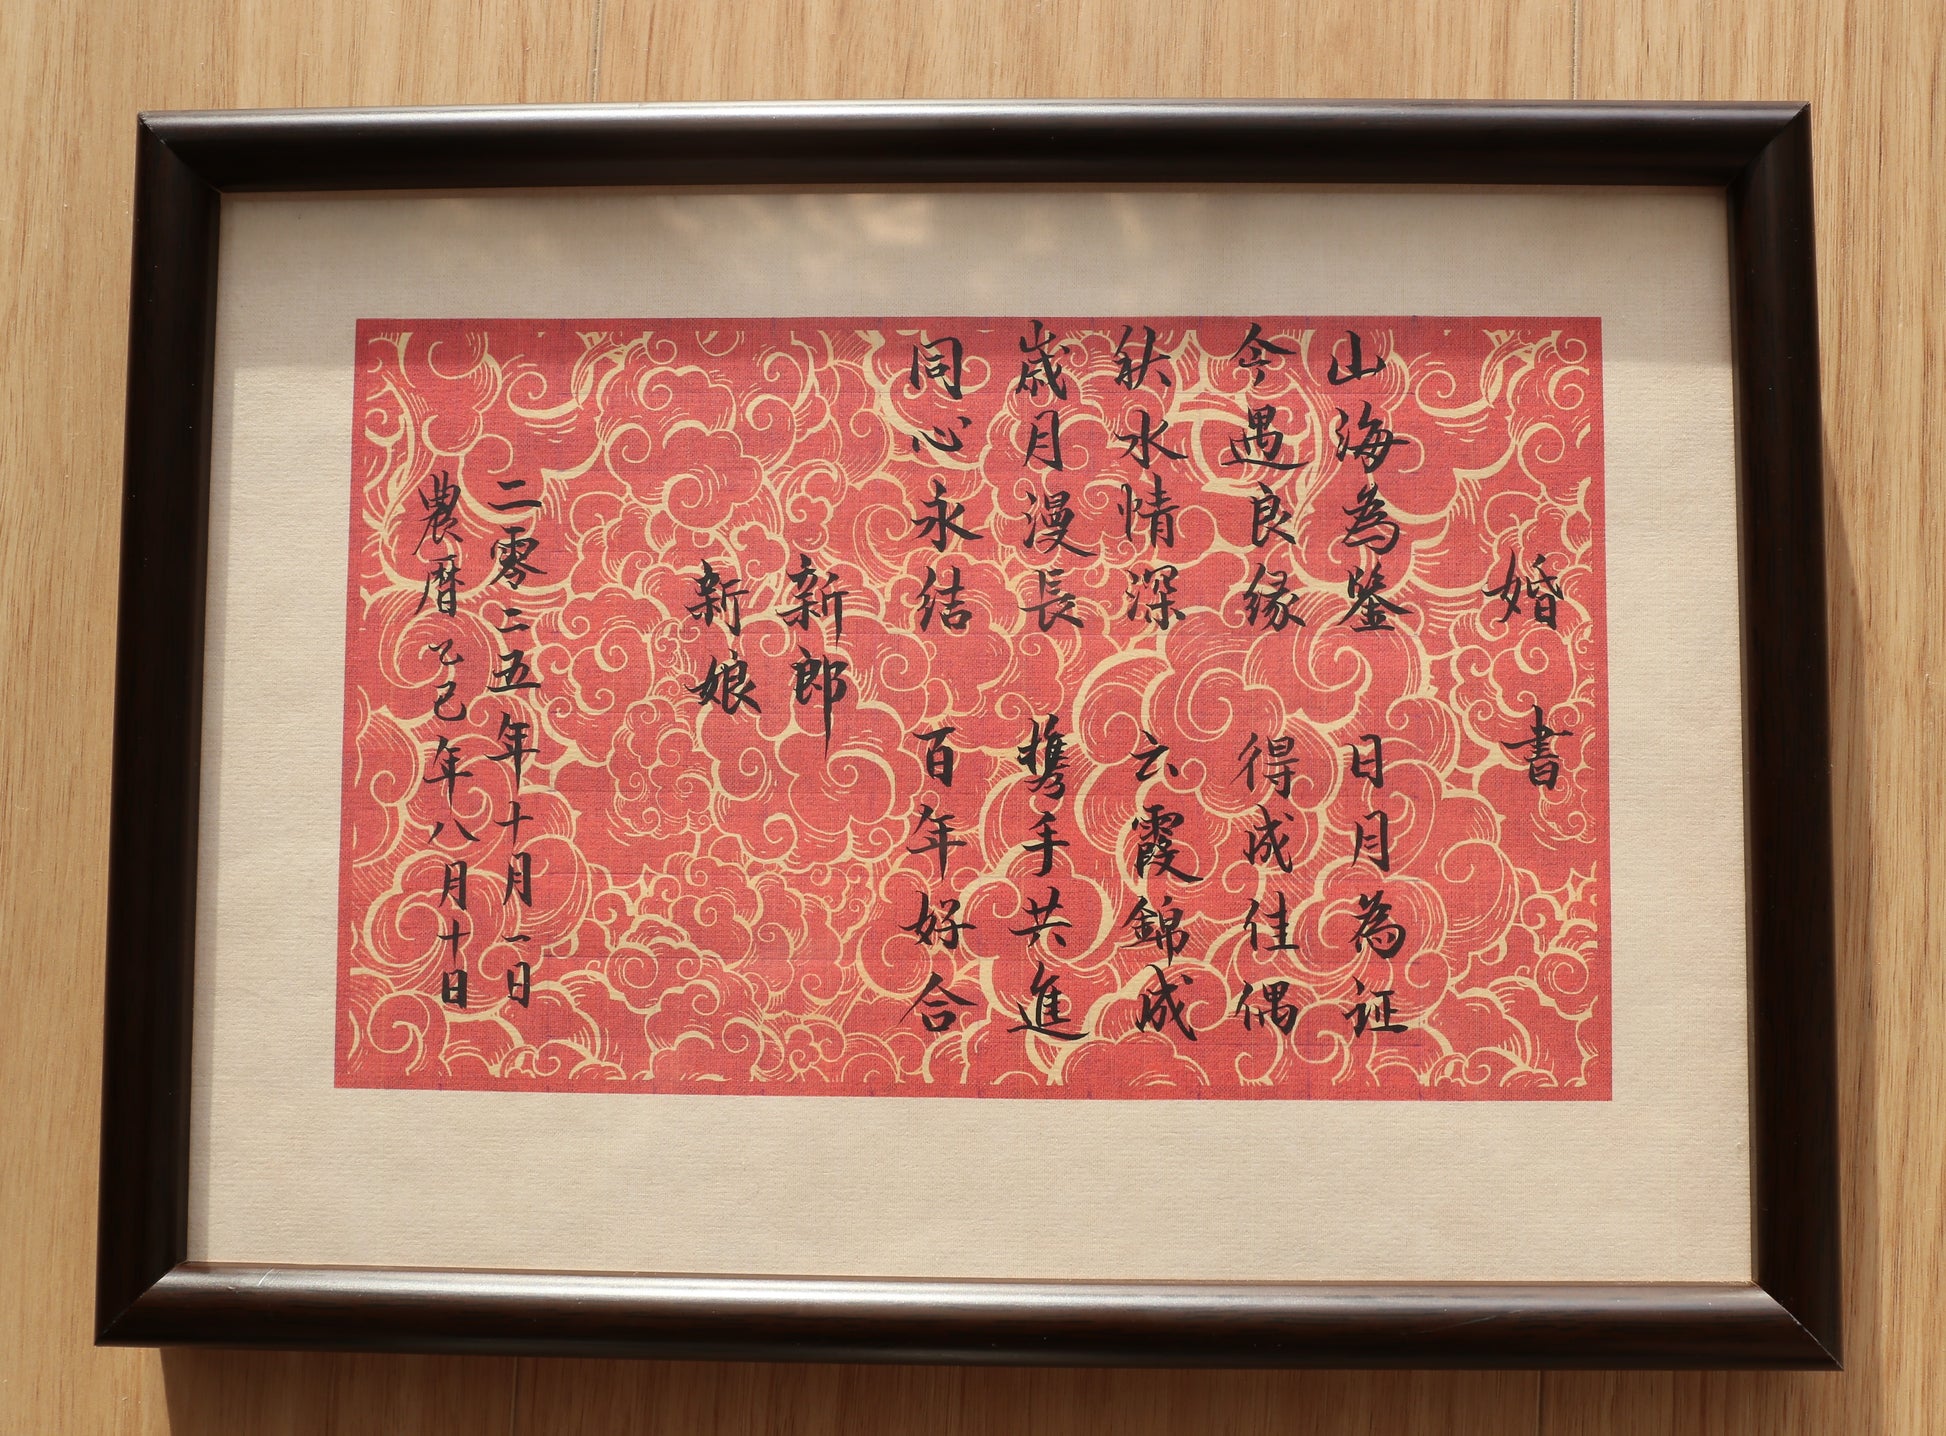 婚書
山海為鑒 日月為证
今遇良缘 得成佳偶
秋水情深 云霞錦成
歲月漫長 携手共進
同心永结 百年好合
新郎
新娘
二零二五年十月一日
農曆乙巳年八月十日